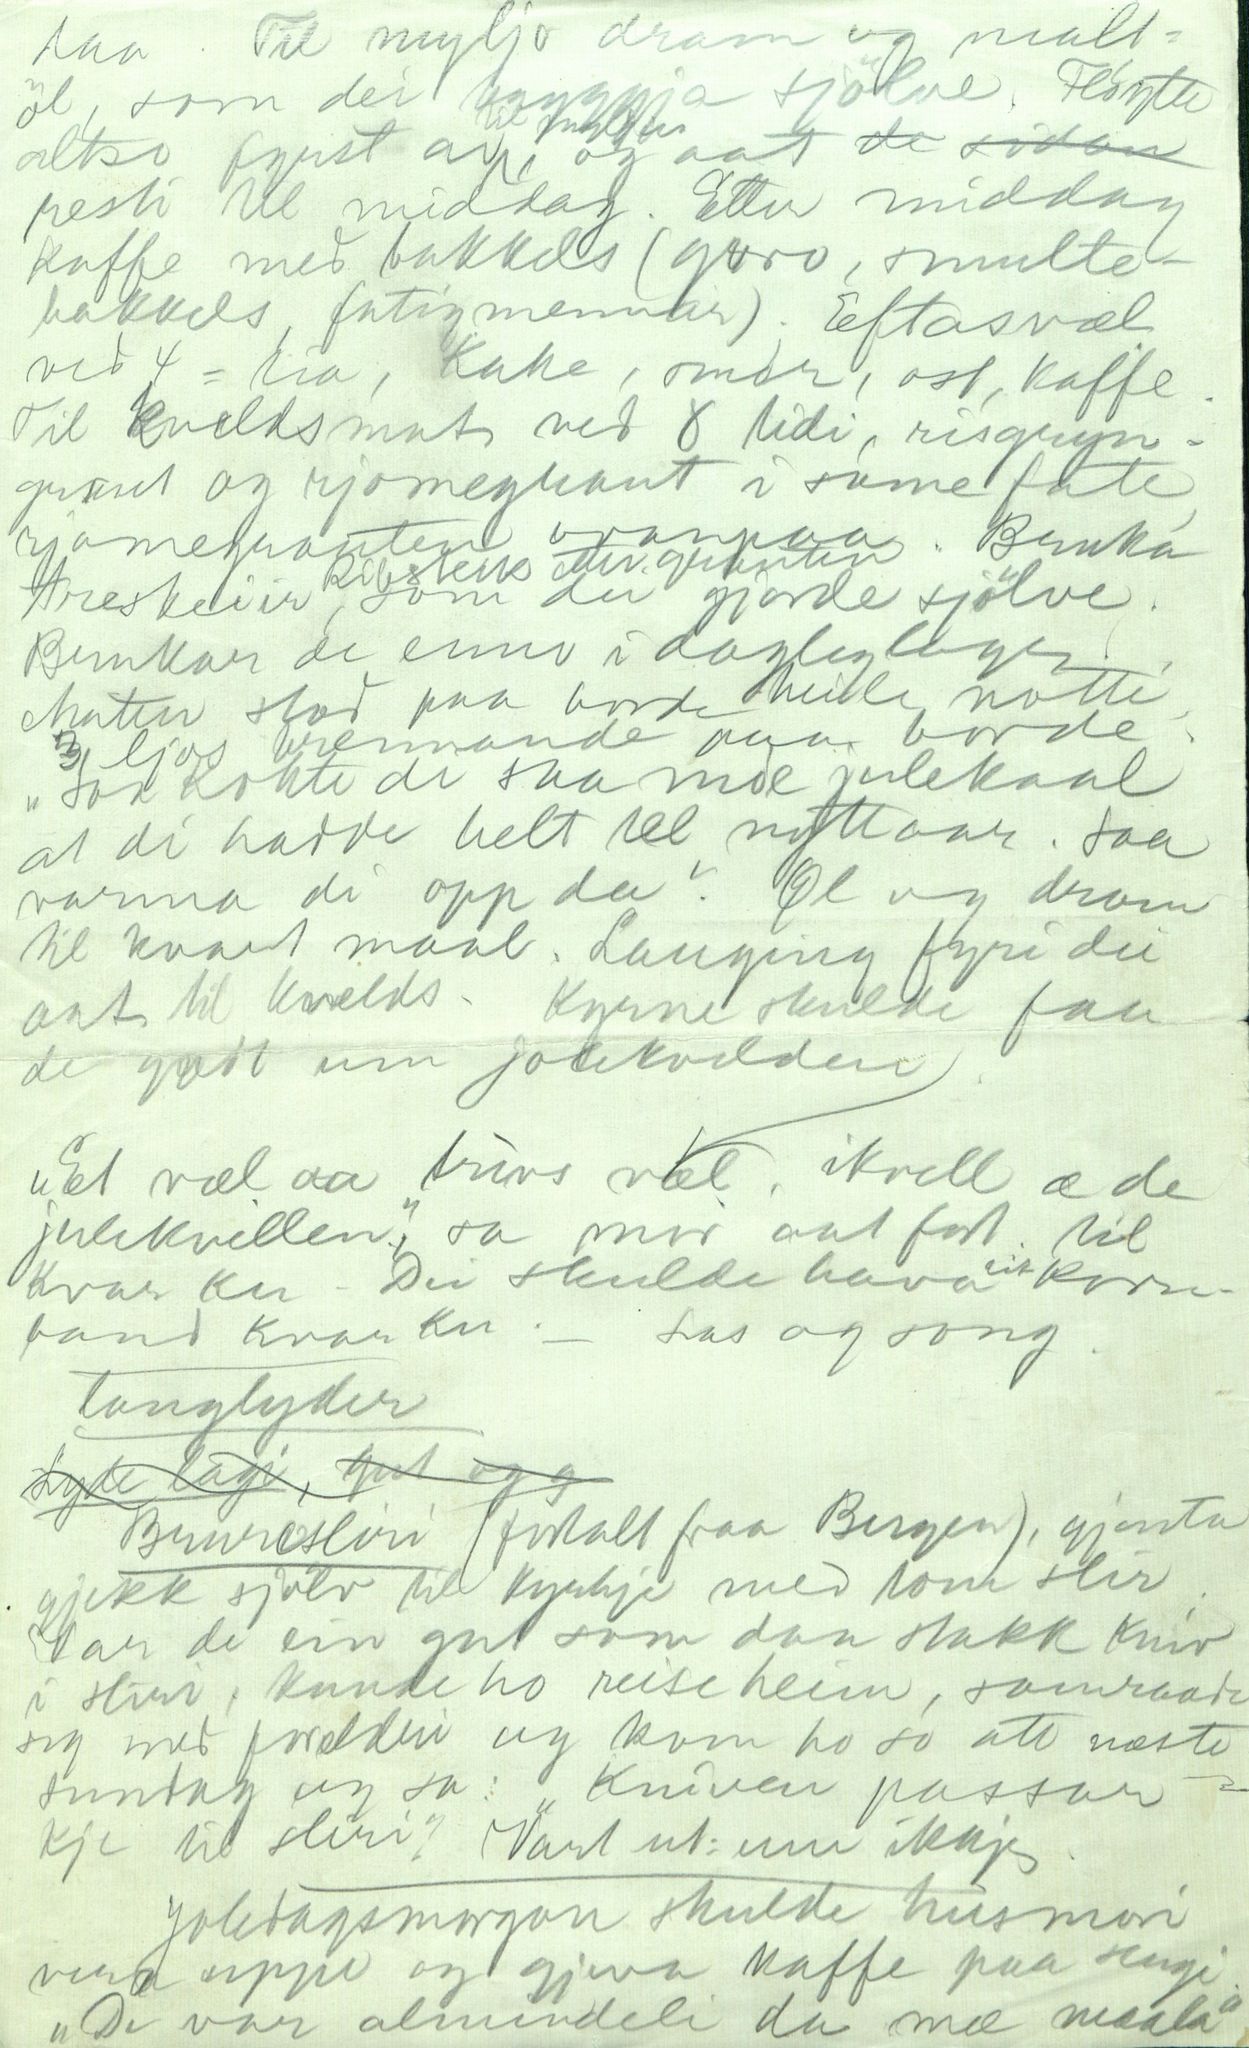 taa. Til myljo dram og malt-
öl, som dei byggja sjölve. Flöytte
til myljun
altso fyrst av, og aat de sidan
resti til middag. Etter middag
kaffe med bakkels (goro, smulte-
bakkels, fatigmennar). Eftasvæl
ved 4 = tia, kake, smör, ost, kaffe.
Til kveldsmat ved 8 tidi, risgryn-
graut og rjomegraut i same fate,
rjomegrauten ovanpaa. Bruka
Ribsteik etter grauten
treskeiir, som dei gjorde sjölve.
Brukar de enno i dagleglaget.
Maten stod paa borde heile notti,
3 ljos brennande paa borde.
"Saa kokte di saa møe julekaal
at di hadde helt tel nyttaar. Saa
varma di opp da". Öl og dram
til kvart maal. Lauging fyri dei
aat til kvelds. Kyrne skulde faa
de godt um jolekvelden.
"Et væl aa trivs væl, ikvell æ de
julekvellen", sa mor aat fast til
kvar ku - Dei skulde hava eit korn-
band kvar ku. - Las og song.
Tunglyder
Lyde lagi, gut og g
Bruresliri (fortalt fraa Bergen), gjenta
gjekk sjölv til kyrkje med tom slir.
Var de ein gut som daa stakk kniv
i sliri, kunde ho reise heim, samraade
seg med foreldri og kom ho so att næste
sundag og sa: "Kniven passar
kje til sliri". Vart ut: um ikkje
Joledagsmorgon skulde husmori
vera uppe og gjeva kaffe paa sengi.
"De var almindeli da mæ maala"